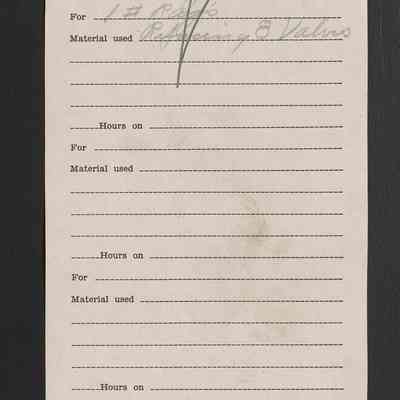 For 1 # Rags
Material used Refacing 3 Valves
Hours on
For
Material used
Hours on
For
Material used
Hours on